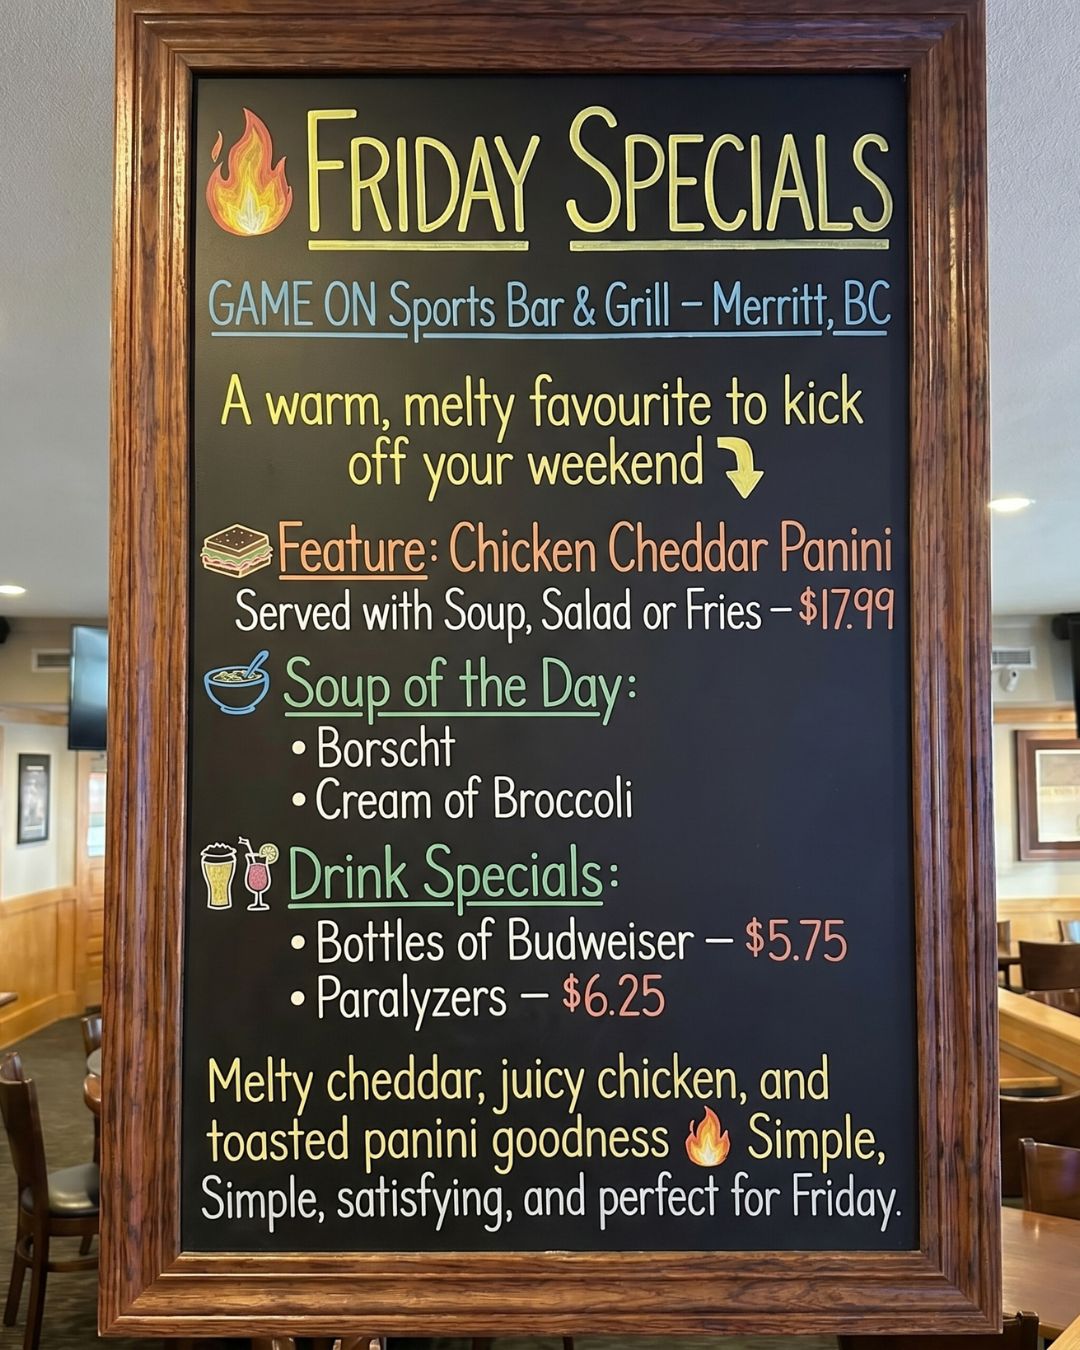 FRIDAY SPECIALS
GAME ON Sports Bar & Grill – Merritt, BC
A warm, melty favourite to kick
off your weekend
Feature: Chicken Cheddar Panini
Served with Soup, Salad or Fries – $17.99
Soup of the Day:
• Borscht
• Cream of Broccoli
Drink Specials:
• Bottles of Budweiser – $5.75
• Paralyzers – $6.25
Melty cheddar, juicy chicken, and
toasted panini goodness 🔥 Simple,
Simple, satisfying, and perfect for Friday.